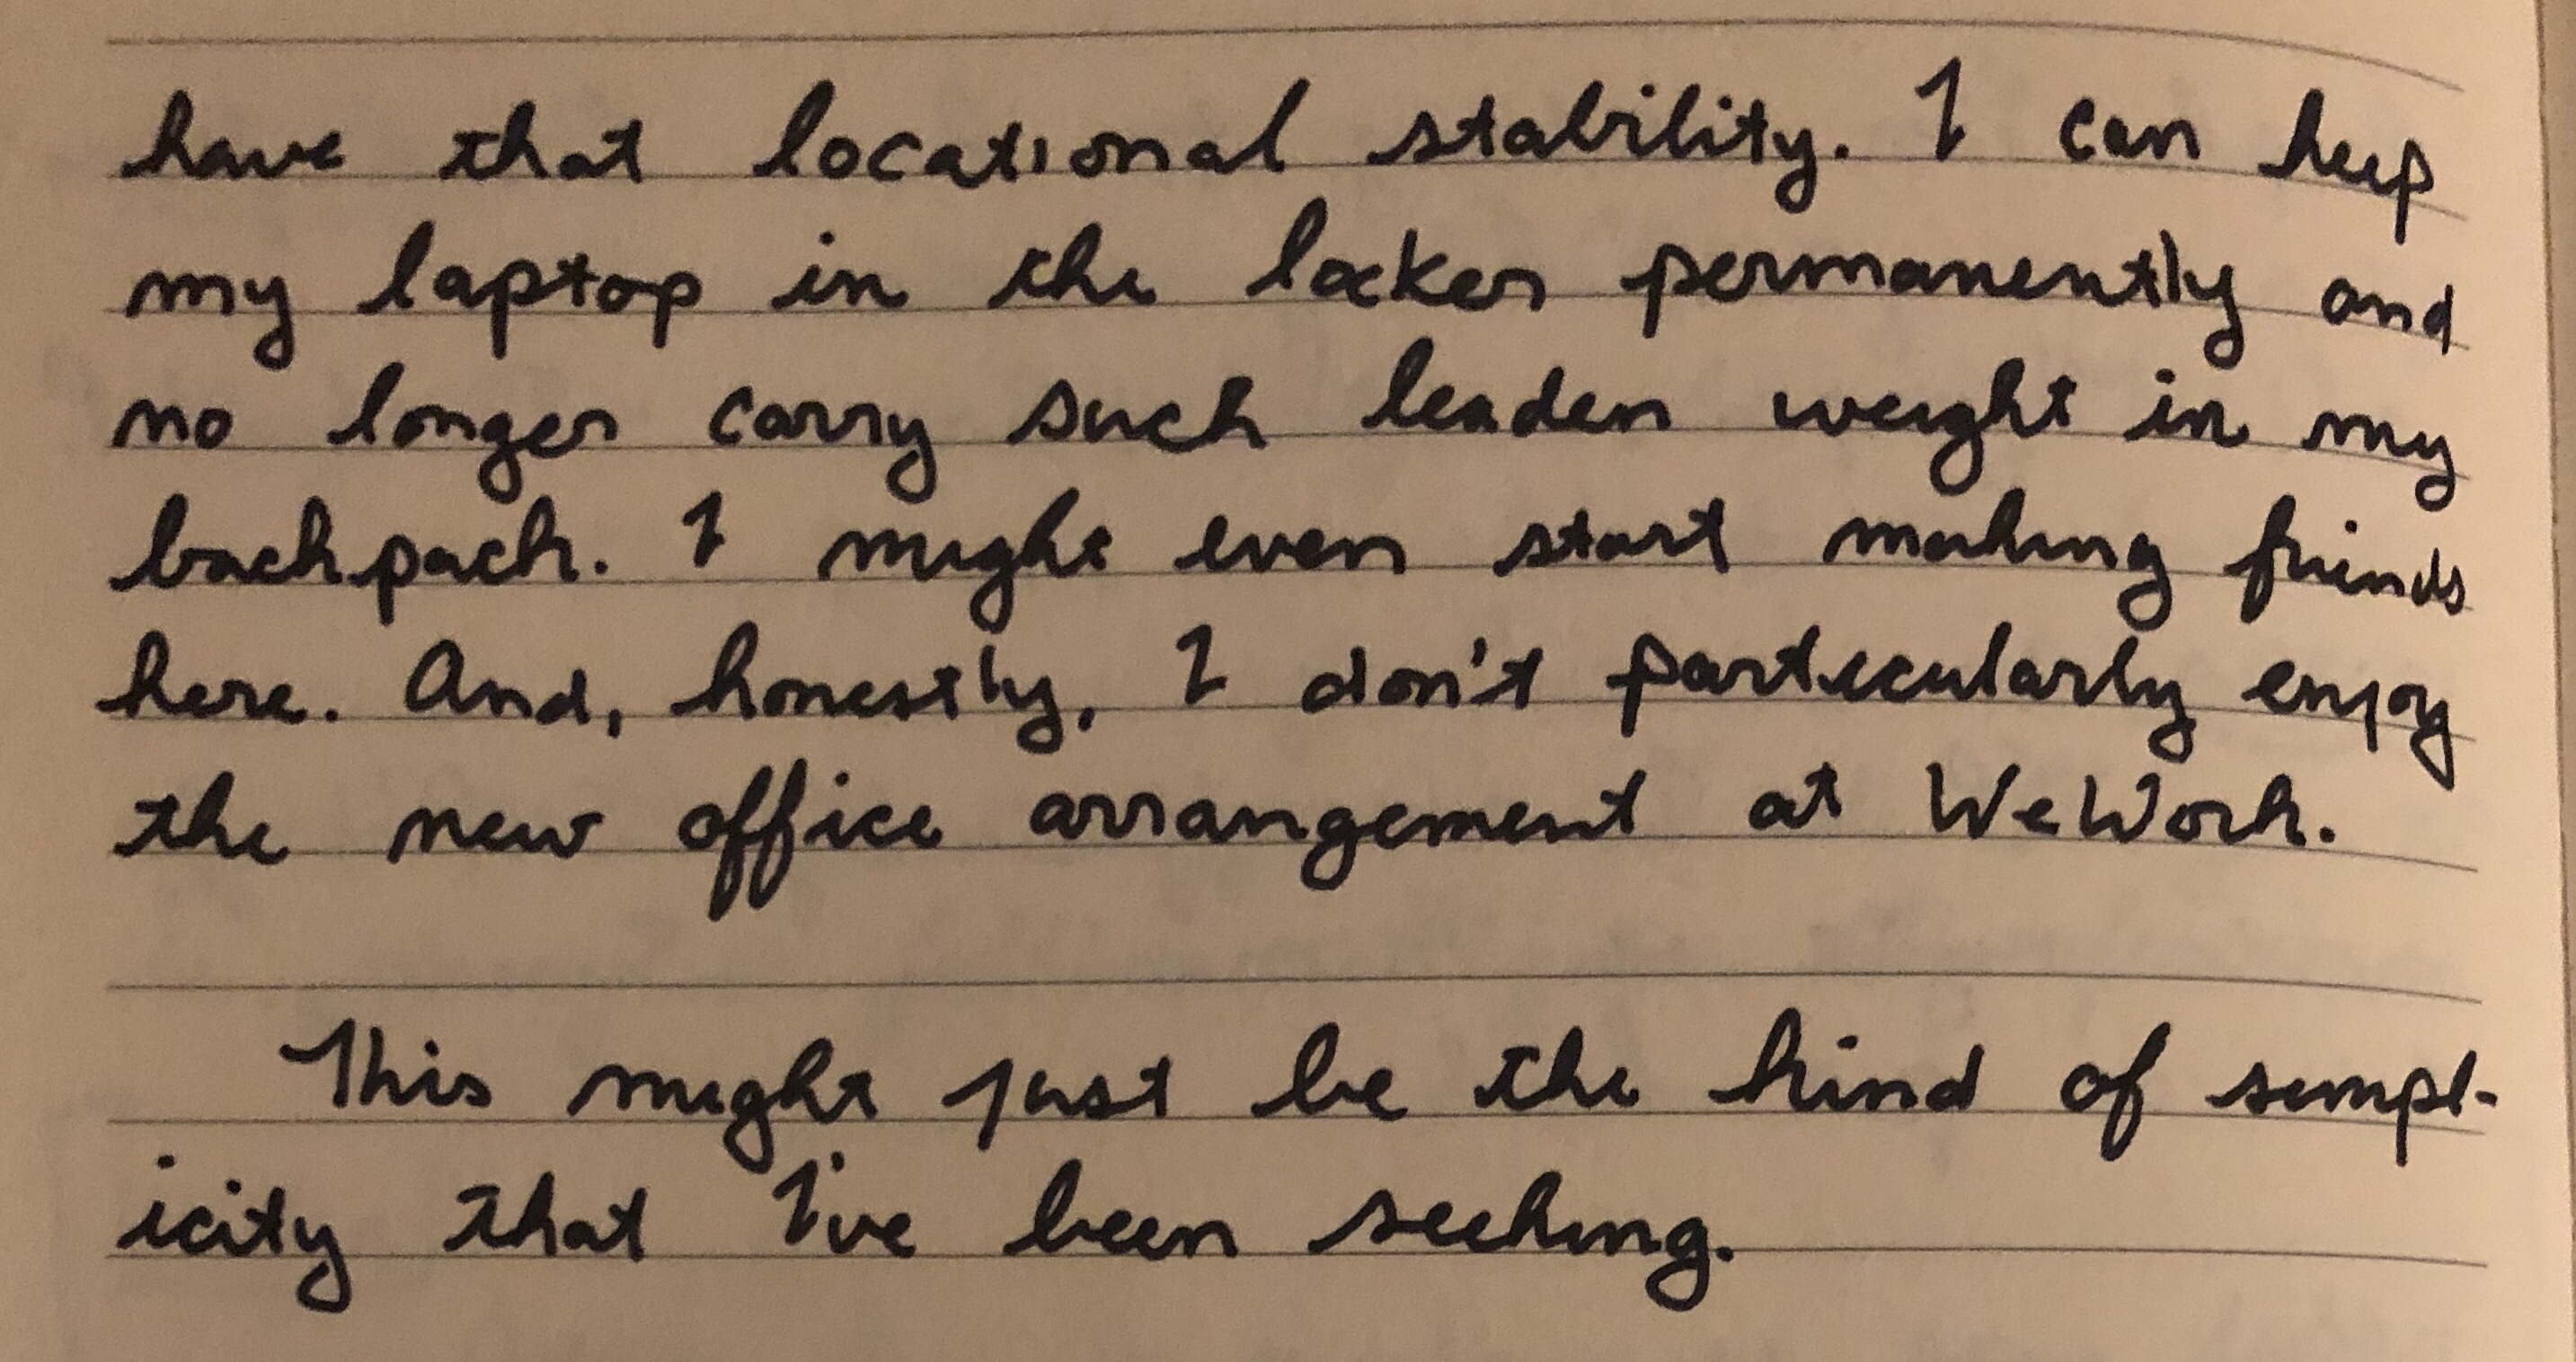 have that locational stability. I can keep
my laptop in the locker permanently and
no longer carry such leaden weight in my
backpack. I might even start making friends
here. And, honestly, I don't particularly enjoy
the new office arrangement at WeWork.
This might just be the kind of simpl-
icity that I've been seeking.